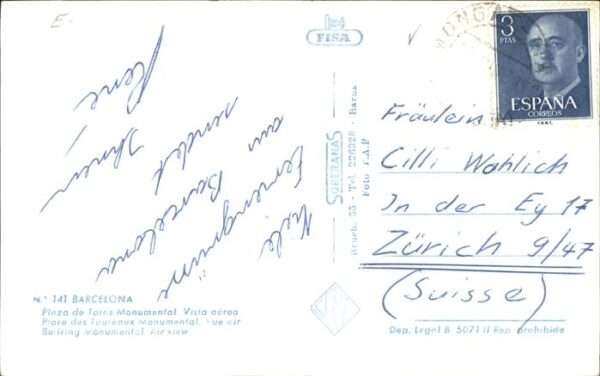 FISA
3
PTAS
ESPAÑA
CORREOS
Viele
Feriengrüsse
aus Barcelona
sendet Ihnen
René
SOBERANAS
Bruch, 55 - Tel. 226328 - Barna
Foto J.A.P
Fräulein
Cilli Wohlich
In der Ey 17
Zürich 9/47
(Suisse)
N.º 141 BARCELONA
Plaza de Toros Monumental. Vista aérea
Place des Taureaux Monumental. Vue air
Bulring Monumental. Air view
Dep. Legal B. 5071 II Rep. prohibida